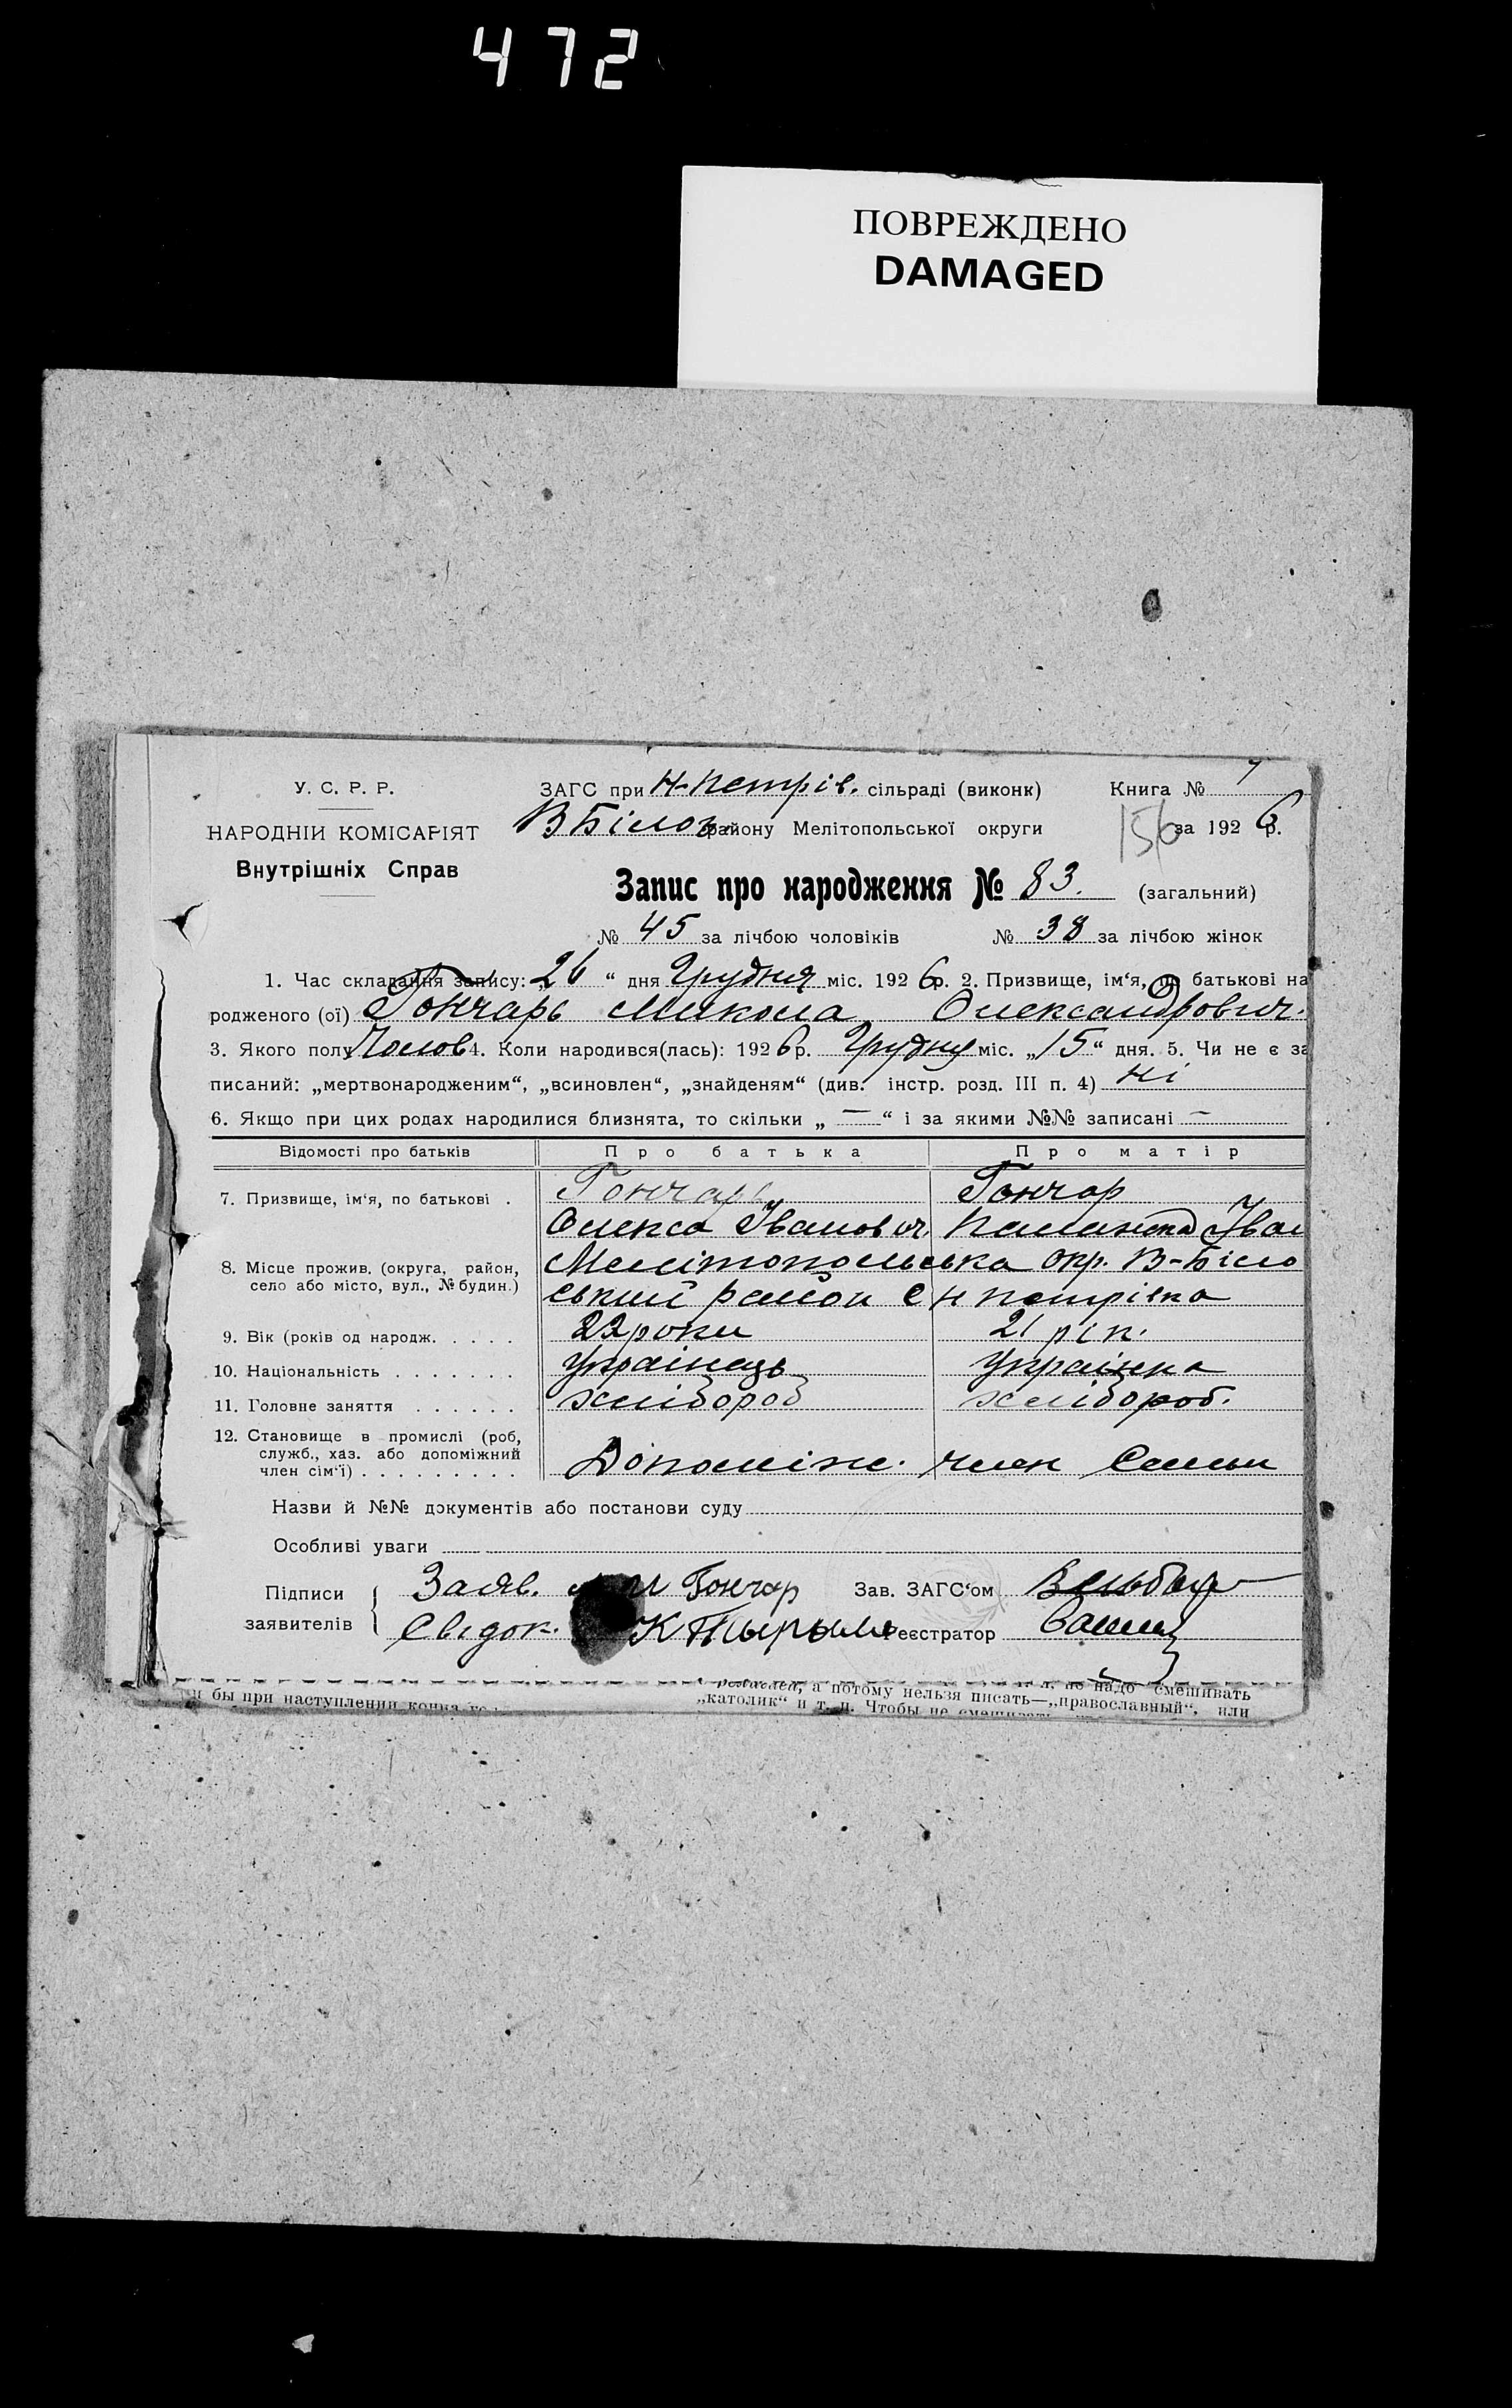 472
ПОВРЕЖДЕНО
DAMAGED
У. С. Р. Р.
НАРОДНІЙ КОМІСАРІЯТ
Внутрішніх Справ
ЗАГС при Н-Петрів. сільраді (виконк)
В Білоз. району Мелітопольської округи
Книга №
156 за 1926 р.
Запис про народження № 83. (загальний)
№ 45 за лічбою чоловіків № 38 за лічбою жінок
1. Час складання запису: „26“ дня Грудня міс. 1926 р. 2. Призвище, ім‘я, по батькові на
родженого (ої) Гончарь Микола Олександрович.
3. Якого полу Чолов 4. Коли народився(лась): 1926 р. Грудня міс. „15“ дня. 5. Чи не є за
писаний: „мертвонародженим“, „всиновлен“, „знайденям“ (див. інстр. розд. III п. 4) ні
6. Якщо при цих родах народилися близнята, то скільки „ — “ і за якими №№ записані —
Відомості про батьків Про батька Про матір
7. Призвище, ім‘я, по батькові . Гончарь Гончар
Олекса Іванович Іван
8. Місце прожив. (округа, район, село або місто, вул., № будин.) Мелітопольська окр. В-Біло
ський район С Н Петрівка
9. Вік (років од народж. . . . . 22 роки 21 рік.
10. Національність . . . . . . . Українець Українка
11. Головне заняття . . . . . . хлібороб хлібороб.
12. Становище в промислі (роб,
служб., хаз. або допоміжний
член сім‘ї) . . . . . . . . . Допоміж. член Семьи
Назви й №№ документів або постанови суду
Особливі уваги
Підписи заявителів { Заяв. Гончар Зав. ЗАГС‘ом
Свідок. К Реєстратор
а потому нельзя писать—„православный“, или
„католик“ и т. п. Чтобы не смешивать
не надо смешивать
бы при наступлении конца